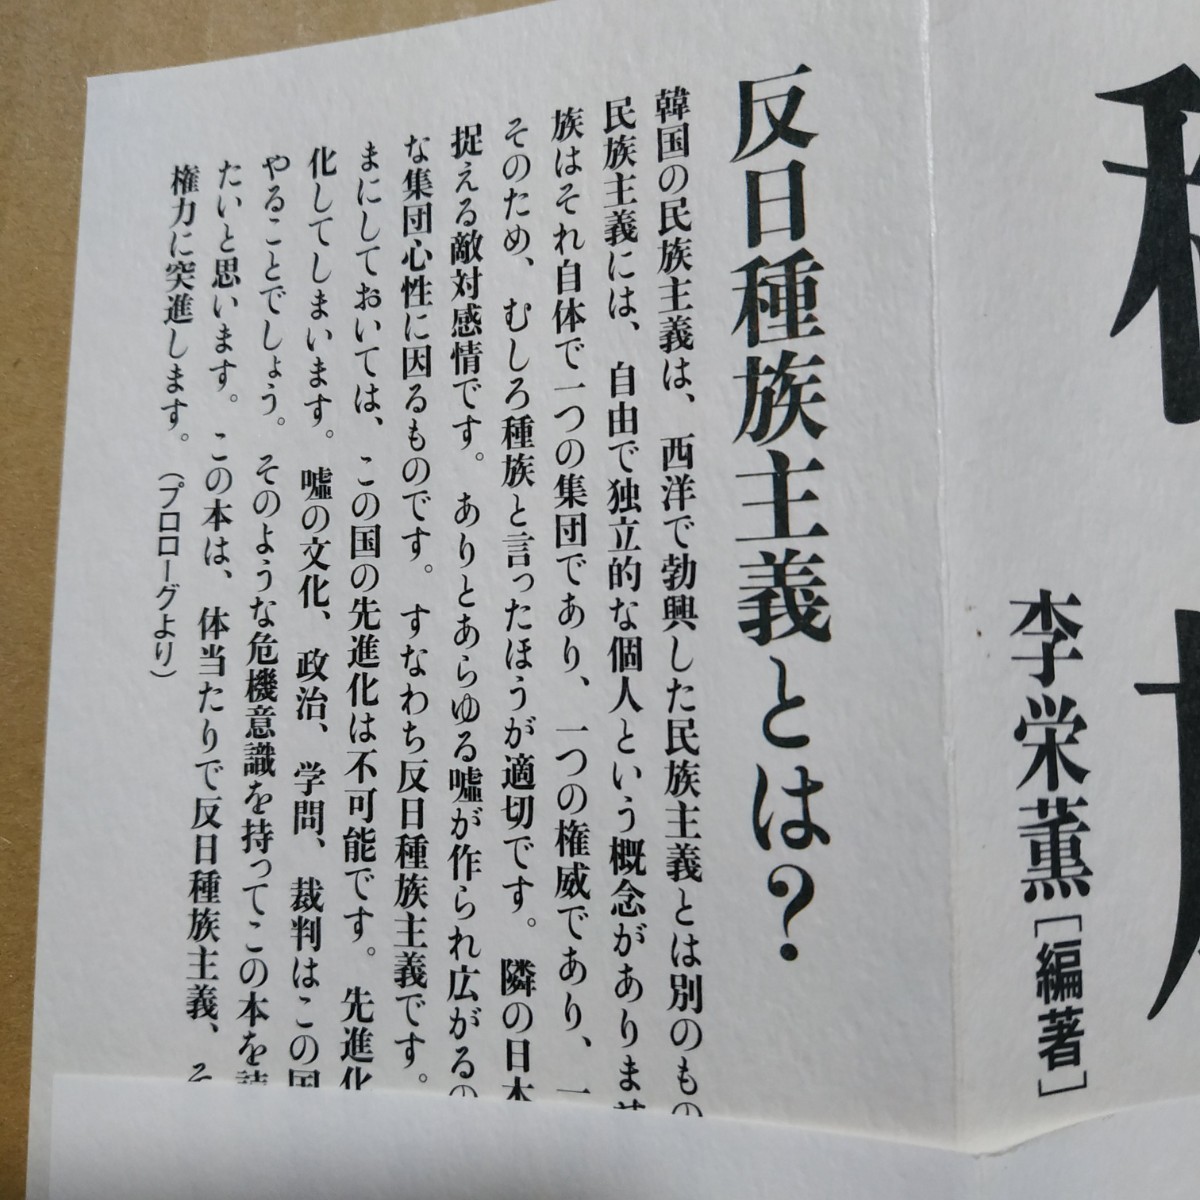 種
族
李栄薫[編著]
反日種族主義とは?
韓国の民族主義は、西洋で勃興した民族主義とは別のもの
民族主義には、自由で独立的な個人という概念がありませ
族はそれ自体で一つの集団であり、一つの権威であり、一
そのため、むしろ種族と言ったほうが適切です。隣の日本
捉える敵対感情です。ありとあらゆる嘘が作られ広がるの
な集団心性に因るものです。すなわち反日種族主義です。
まにしておいては、この国の先進化は不可能です。先進化
化してしまいます。嘘の文化、政治、学問、裁判はこの国
やることでしょう。そのような危機意識を持ってこの本を読
たいと思います。この本は、体当たりで反日種族主義、そ
権力に突進します。(プロローグより)